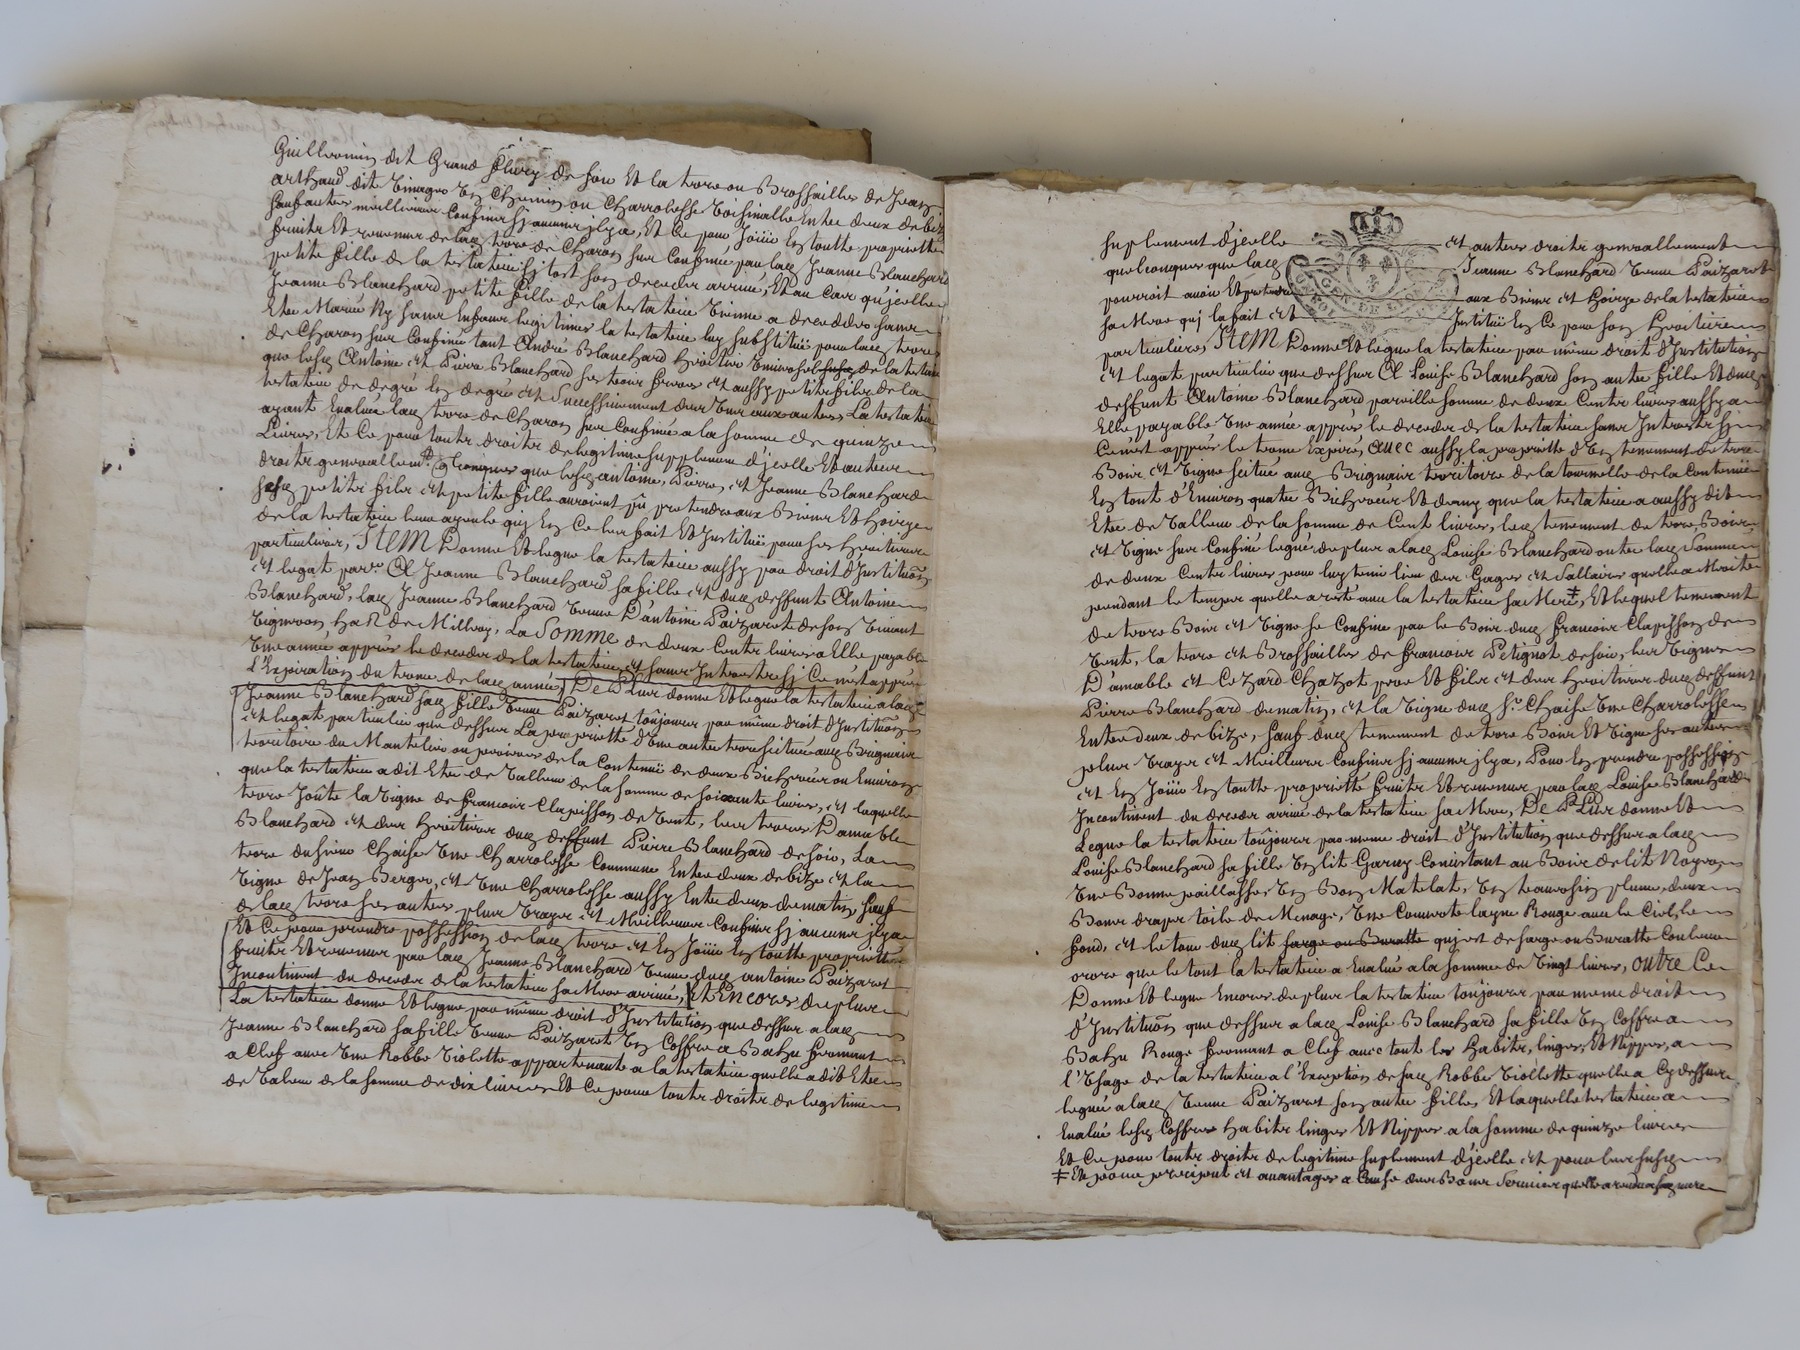 Guillermin dit Grand fleury de soir Et la terre ou Brossailles de Jean
arthaud dit Vinagre Un Chemin ou Charrolesse Voisinalle Entre deux de bize
sauf autres meillieures Confins sj aucuns jlya, Et Ce pour Joüir En toutte proprietté
fruits Et revenus de lad. terre de Charon sus Confinée par lad. Jeanne Blanchard
petite fille de la testatrice sj tost son deceder arrivé, Et au Cas qu'jcelle
Jeanne Blanchard petite fille de la testatrice Vienne a deceddes sans
Etre Mariée Ny sans Enfans legitimes la testatrice luy substituë pour lad. terre
de Charon sus Confinée tant André Blanchard heritier Universel de la testatrice
que lesd. Antoine et Pierre Blanchard ses trois freres et aussy petits fils de la
testatrice de degré En degré et Successivement des Uns aux autres La testatrice
ayant Evaluée lad. terre de Charon sus Confinée a la somme de quinze
Livres, Et Ce pour touts droits de legitime supplement d'jcelle Et autres
droits generallemt. quelconques que lesd. antoine, Pierre, et Jeanne Blanchard
sesd. petits fils et petite fille auroient pû pretendre aux Biens Et hoirye
de la testatrice leur ayeule quj En Ce les fait Et Justituë pour ses heritiers
particuliers, ITEM Donne Et legue la testatrice aussy par droit d'Institution
et legat parer A Jeanne Blanchard sa fille et dud. deffunt Antoine
Blanchard, lad. Jeanne Blanchard Veuve D'antoine Paizaret de son Vivant
Vigneron hab. de Millery, La Somme de deux Cents livres a Elle payable
Une année apprés le decedes de la testatrice et sans Interests sj Ce n'est apprés
L'Expiration du terme de lad. année, De Plus donne Et legue la testatrice a lad.
Jeanne Blanchard sad. fille Veuve Paizaret toûjours par même droit d'Institution
et legat particulier que dessus La proprietté d'Une autre terre scituée aud. Brignais
territoire du Mantelier ou perieres de la Contenuë de deux Bicherées ou Environ
que la testatrice a dit Etre de Valleur de la somme de soixante livres, et laquelle
terre Joûte la Vigne de francois Clapisson de Vent, les terres Damable
Blanchard et des heritiers dud. deffunt Pierre Blanchard de soir, La
terre du sieur Chaise Une Charrolesse Commune Entre deux de bize et la
Vigne de Jean Berger, et Une Charrolesse aussy Entre deux de matin sauf
de lad. terre ses autres plus Vrayes et Meilleures Confins sj aucuns jlya
Et Ce pour prendre possession de lad. terre et En Joüir En toutte proprietté
fruits Et revenus par lad. Jeanne Blanchard Veuve dud. antoine Paizaret
Incontinent du decedes de la testatrice sa Mere arrivé, Et Encores de plus
La testatrice donne Et legue par même droit d'Institution que dessus a lad.
Jeanne Blanchard sa fille Veuve Paizaret Un Coffre a Bahu fermant
a Clef avec Une Robbe Violette appartenante a la testatrice quelle a dit Etre
de Valeur de la somme de dix livres Et Ce pour touts droits de legitime
suplement d'jcelle et autres droits generallement
quelconques que lad. Jeanne Blanchard Veuve Paizaret
pourroit avoir Et pretendre aux Biens et hoirye de la testatrice
sa Mere quj la fait et Instituë En Ce pour son heritiere
particuliere, ITEM Donne Et legue la testatrice par même droit d'Institution
et legat particulier que dessus A Louise Blanchard son autre fille Et dud.
deffunt Antoine Blanchard pareille somme de deux Cents livres aussy a
Elle payable Une année apprés le decedes de la testatrice sans Interests sj
Ce n'est apprés le terme Expirés, Avec aussy la proprietté d'Un tenement de terre
Bois et Vigne scituée aud. Brignais territoire de la tournelle de la Contenuë
En tout d'Environ quatre Bicherées Et demy que la testatrice a aussy dit
Etre de Valleur de la somme de Cent livres, led. tenement de terre Bois
et Vigne sus Confiné legués de plus a lad. Louise Blanchard outre lad. Somme
de deux Cents livres pour luy tenir lieu des Gages et Sallaires quelle a Merité
pendant le temps quelle a resté avec la testatrice sa Mere ‡, Et lequel tenement
de terre Bois et Vigne se Confine par le Bois dud. francois Clapisson de
Vent, la terre et Brossailles de francois Petignot de soir, les Vignes
D'amable et Cezard Chazot pere Et fils et des heritiers dud. deffunt
Pierre Blanchard de matin, et la Vigne dud. sr. Chaise Une Charrolesse
Entre deux de bize, sauf dud. tenement de terre Bois Et Vigne ses autres
plus Vrayes et Meilleurs Confins sj aucuns jlya, Pour En prendre possession
et En Joüir En toutte proprietté fruits Et revenus par lad. Louise Blanchard
Incontinent du decedes arrivé de la testatrice sa Mere, De Plus donne Et
Legue la testatrice toûjours par meme droit d'Institution que dessus a lad.
Louise Blanchard sa fille Un lit Garny Consistant au Bois de lit Noyer,
Une Bonne paillasse, Un Bon Matelat, Un traversin plume, deux
Bons draps toile de Menage, Une Couverte layne Rouge avec le Ciel, le
fond, et le tour dud. lit sarge ou Buratte quj est de sarge ou Buratte Couleur
orore que le tout la testatrice a Evalué a la somme de Vingt livres, outre Ce
Donne Et legue Encores de plus la testatrice toûjours par meme droit
d'Institution que dessus a lad. Louise Blanchard sa fille Un Coffre a
Bahu Rouge fermant a Clef avec tout les habits, linges Et Nippes, a
l'Usage de la testatrice a l'Exception de sad. Robbe Viollette quelle a Cy dessus
legué a lad. Veuve Paizaret son autre fille, Et laquelle testatrice a
Evalué lesd. Coffres habits linges Et Nippes a la somme de quinze livres
Et Ce pour touts droits de legitime suplement d'jcelle et pour
‡ Et pour preciput et avantages a Cause des Bons Services quelle a rendu a sad. mere